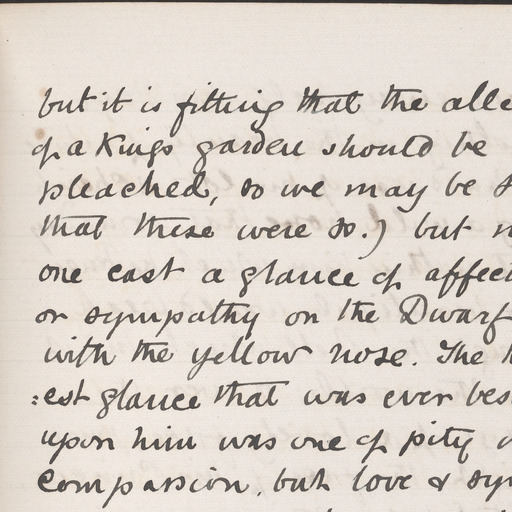 but it is fitting that the alle
of a Kings garden should be
pleached, so we may be s
that these were so.) but n
one cast a glance of affect
or sympathy on the Dwarf
with the yellow nose. The k
:est glance that was ever bes
upon him was one of pity o
compassion, but love & sym